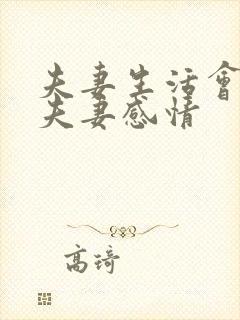 夫妻生活會
夫妻感情
高琦